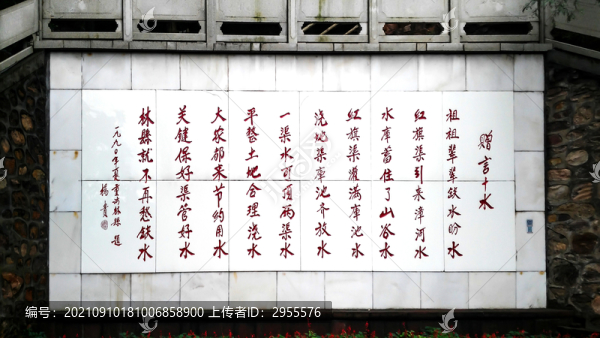 赠言十水
祖祖辈辈饮水盼水
红旗渠引来漳河水
水库蓄住了山谷水
红旗渠灌满库池水
浇地渠库池齐放水
一渠水可顶两渠水
平整土地合理浇水
大家都来节约用水
关键保好渠管好水
林县就不再愁饮水
一九九〇年夏重访林县题
杨贵
编号:20210910181006858900 上传者ID:2955576